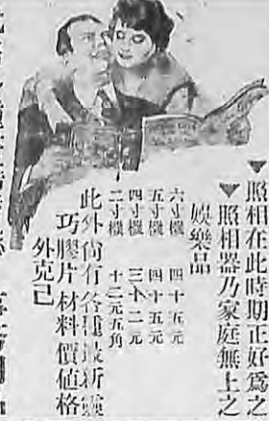 ▼照相在此時期正好爲之
▼照相器乃家庭無上之
娛樂品
六寸機 四十五元
五寸機 四十五元
四寸機 三十二元
二寸機 十二元五角
此外尚有各種最新靈
巧膠片材料價値格
外克己